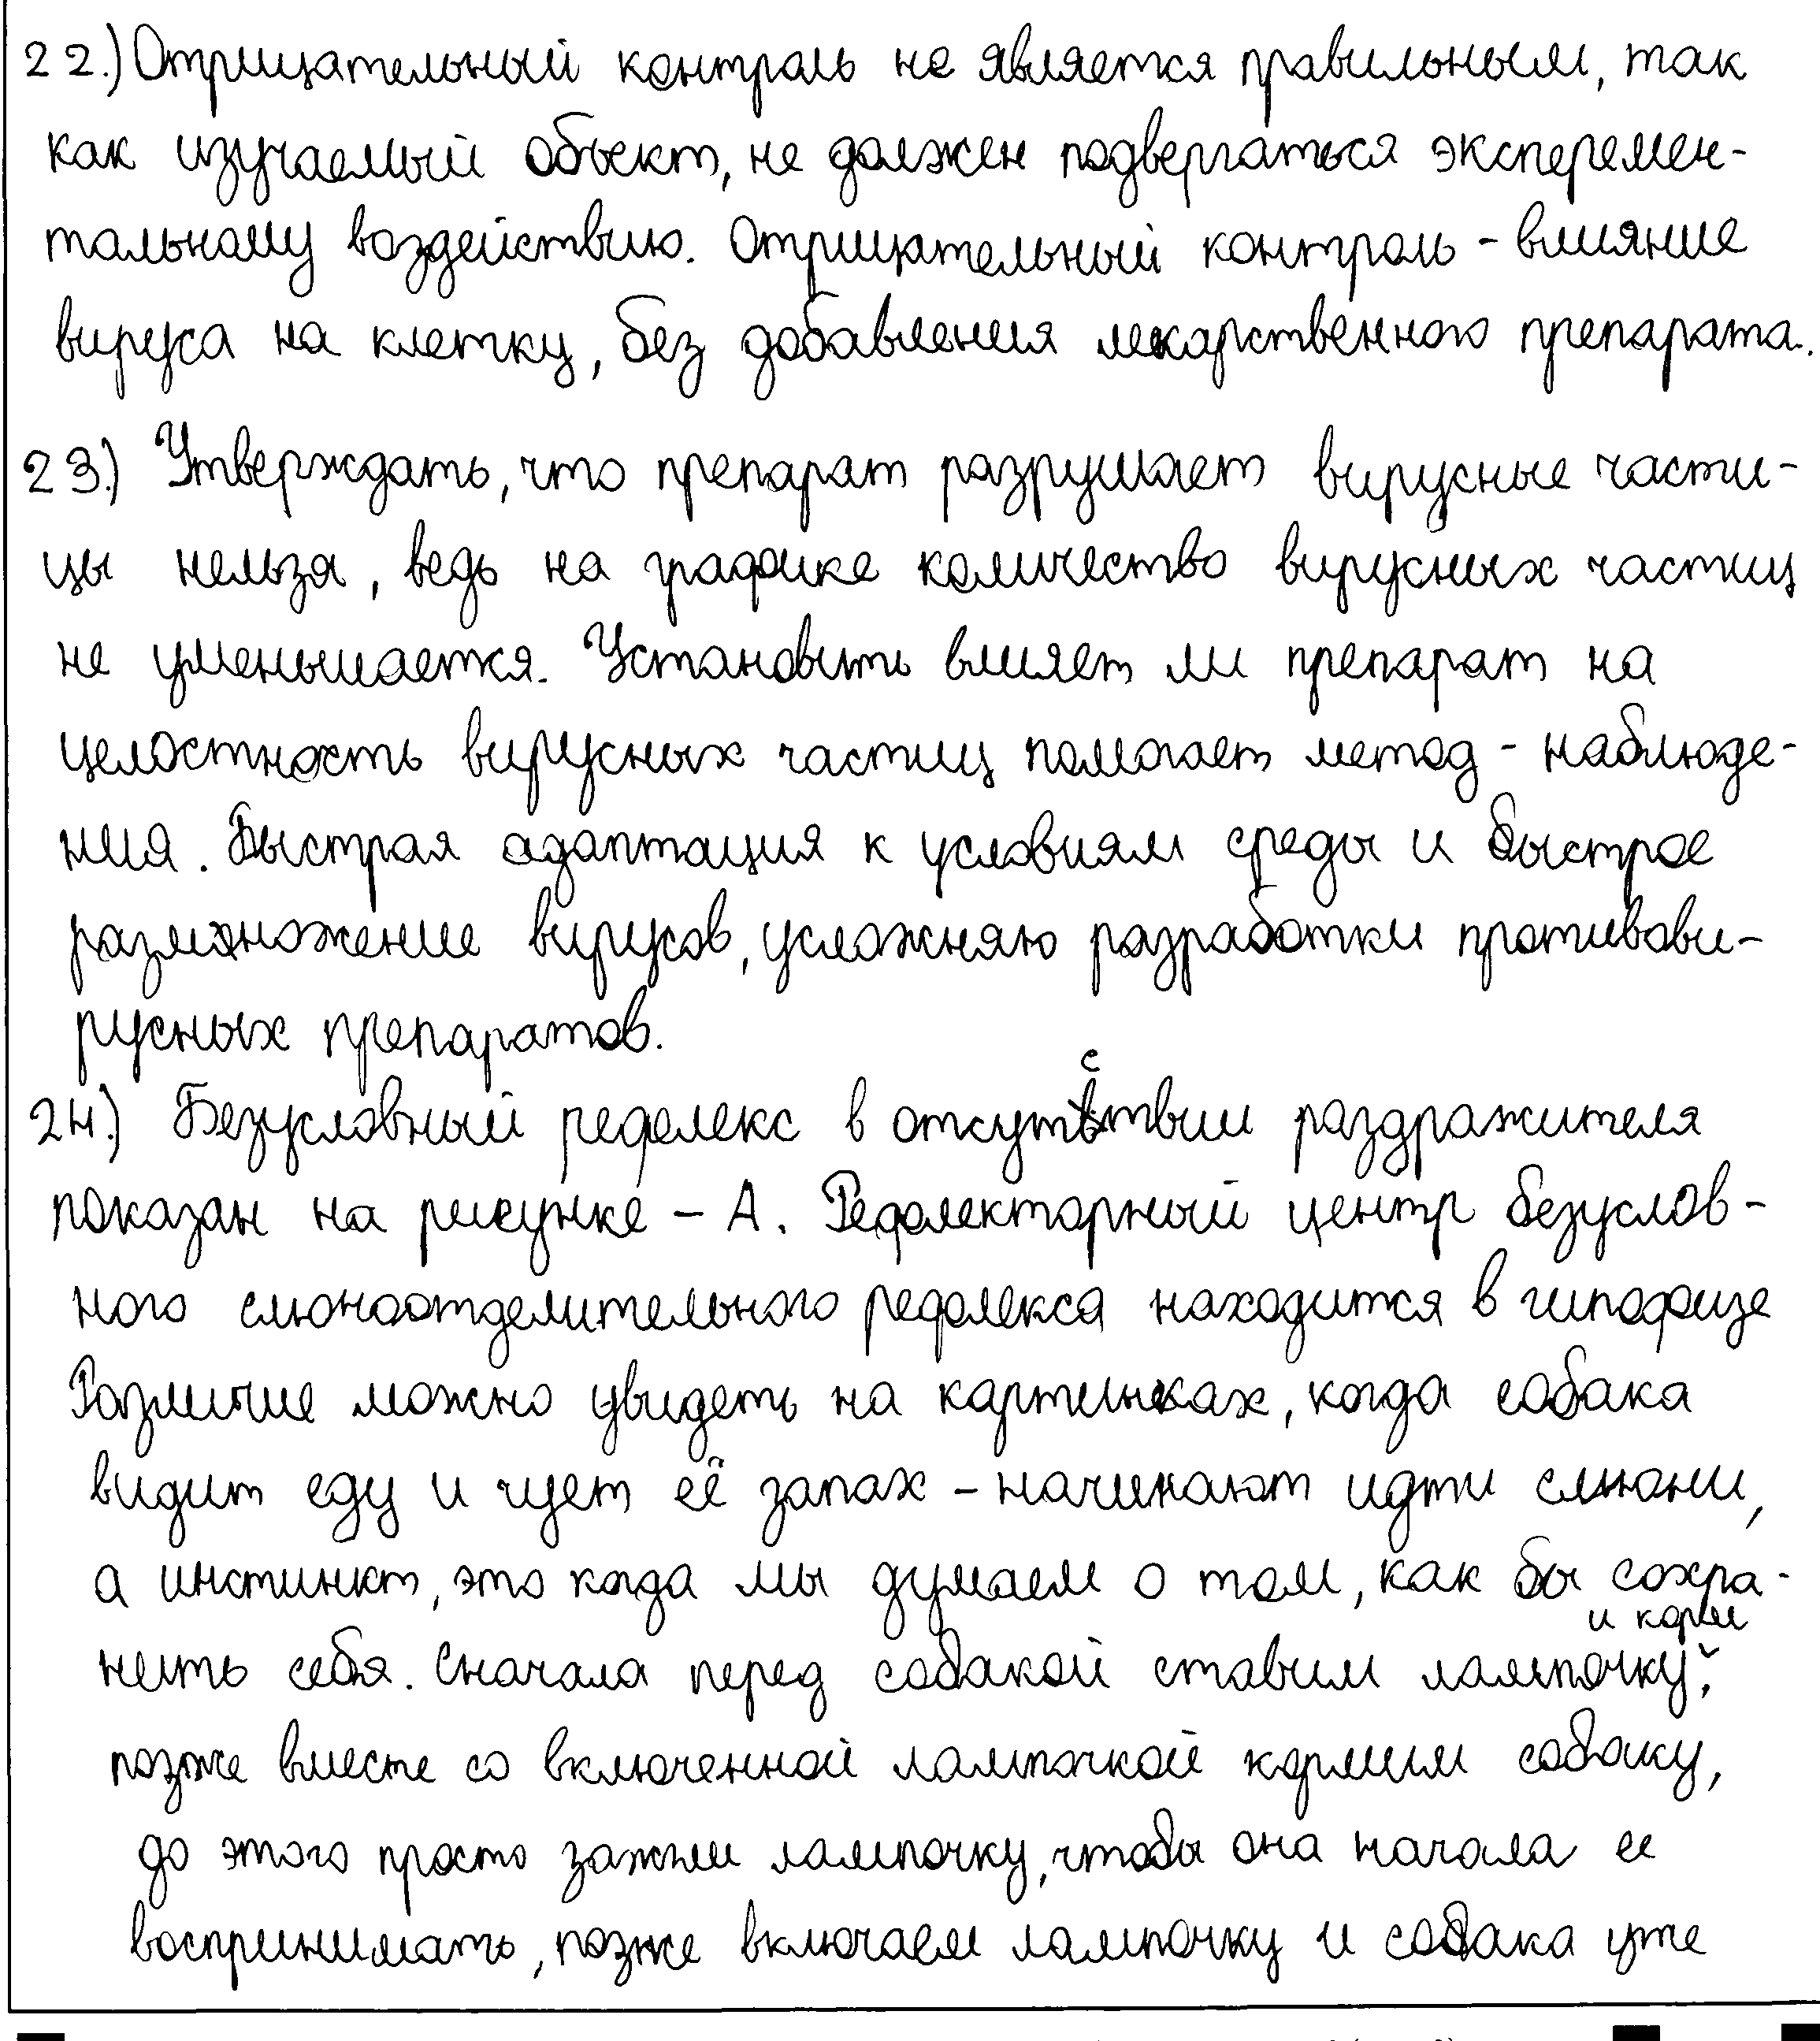 22.) Отрицательный контроль не является правильным, так
как изучаемый объект, не должен подвергаться эксперемен-
тальному воздействию. Отрицательный контроль - влияние
вируса на клетку, без добавления лекарственного препарата.
23.) Утверждать, что препарат разрушает вирусные части-
цы нельзя, ведь на графике количество вирусных частиц
не уменьшается. Установить влияет ли препарат на
целостность вирусных частиц помогает метод - наблюде-
ния. Быстрая адаптация к условиям среды и быстрое
размножение вирусов, усложняю разработки противови-
русных препаратов.
24.) Безусловный рефлекс в отсутствии раздражителя
показан на рисунке - А. Рефлекторный центр безуслов-
ного слюноотделительного рефлекса находится в гипофизе
Различие можно увидеть на картинках, когда собака
видит еду и чует её запах - начинают идти слюни,
а инстинкт, это когда мы думаем о том, как бы сохра-
нить себя. Сначала перед собакой ставим лампочку и корм,
позже вместе со включенной лампочкой кормим собаку,
до этого просто зажгли лампочку, чтобы она начала ее
воспринимать, позже включаем лампочку и собака уже